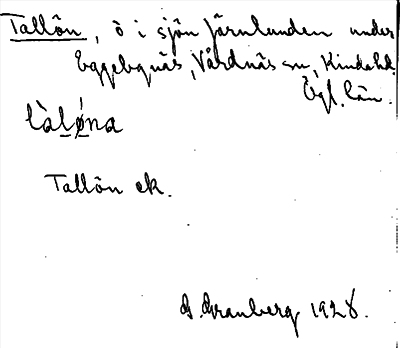 Tallön, ö i sjön Järnlunden under
Eggebynäs, Vårdnäs sn, Kinda hd.
Ögl. län.
tàlǿna
Tallön ek.
G. Granberg 1928.